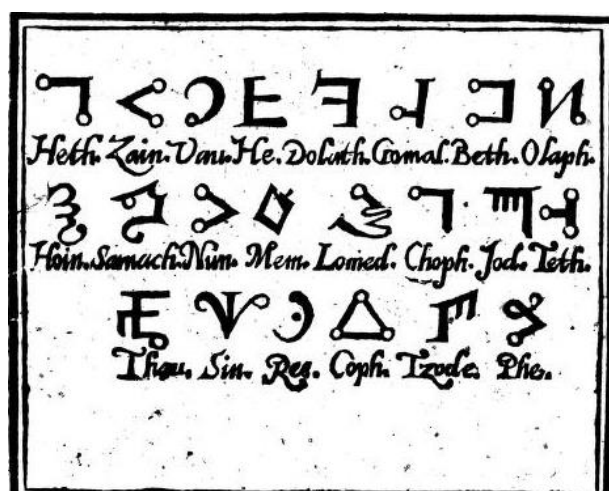 Heth. Zain. Vau. He. Dolath. Gomal. Beth. Olaph.
Hoin. Samach. Nun. Mem. Lomed. Choph. Jod. Teth.
Thau. Sin. Res. Coph. Tzode. Phe.